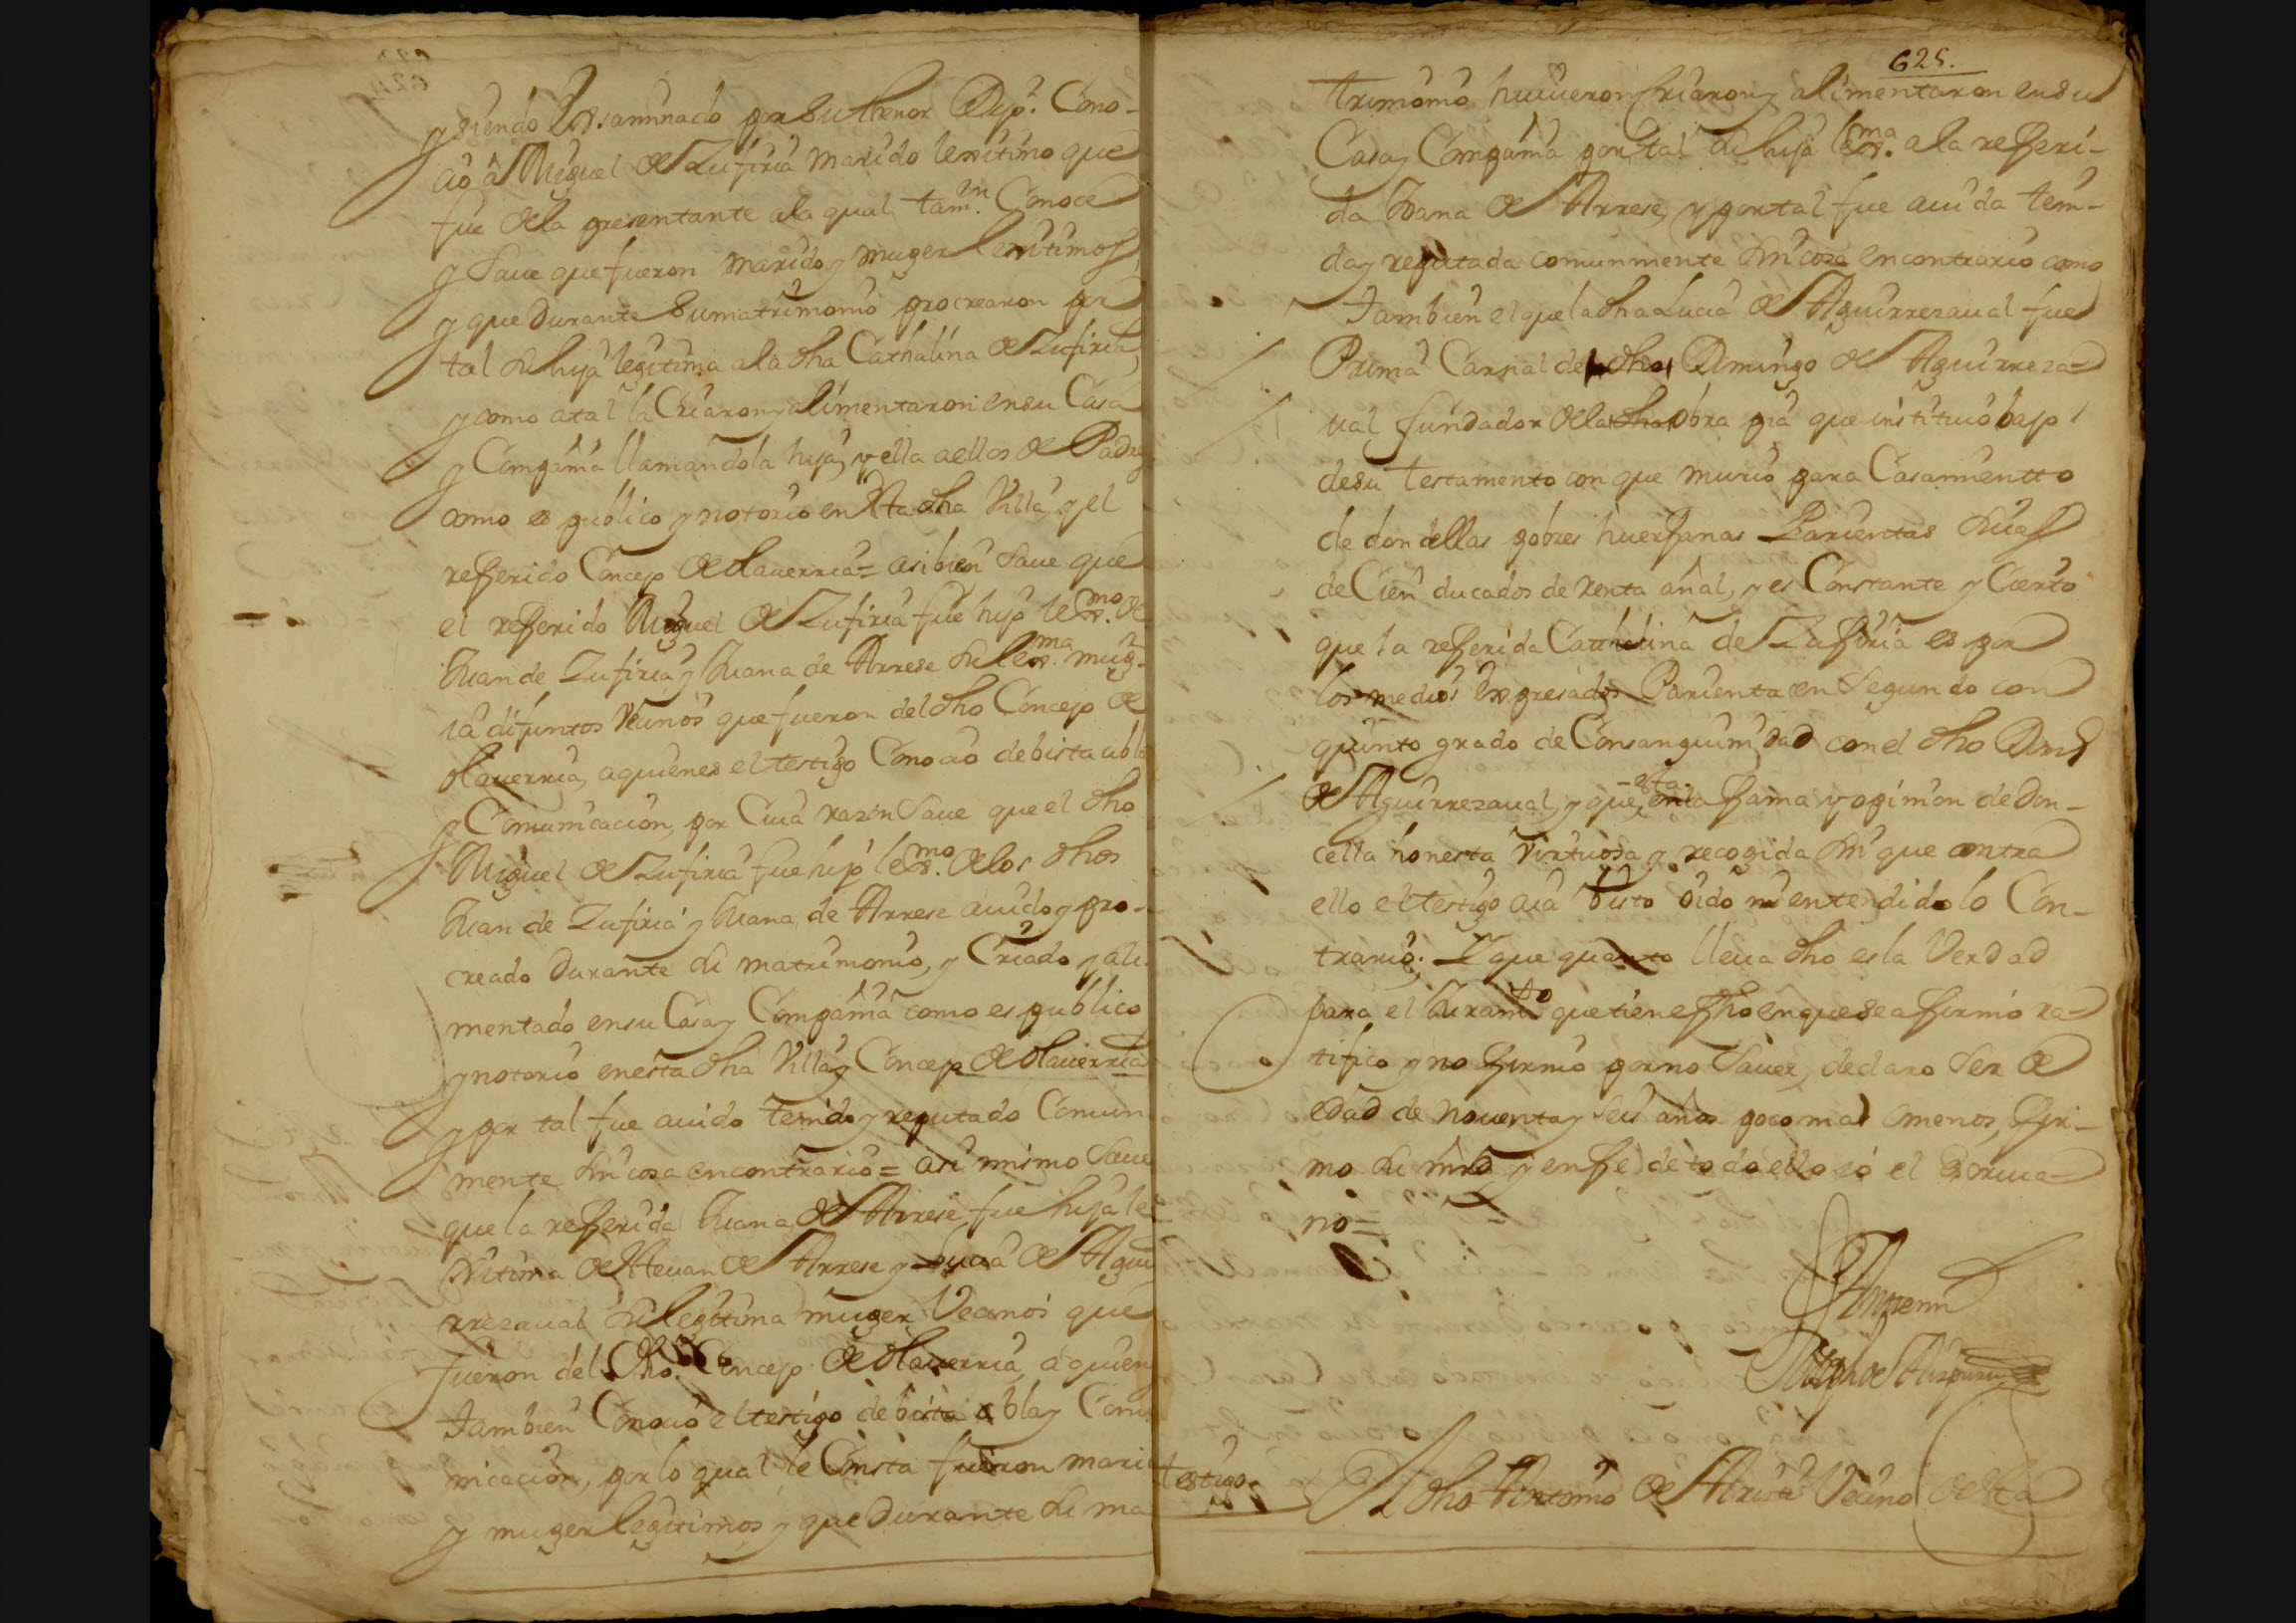 y siendo Exsaminado por su thenor Dijo. Cono-
cio â Miguel de Zufiria marido lexitimo que
fue dela presentante ala qual tamvn. Conoce
y Save que fueron marido y muger lexitimos
y que Durante Sumatrimonio procrearon por
tal su hija legitima ala dha Cathalina de Zufiria
y como atal la Criaron y alimentaron ensu Casa
y Compañia llamandola hija, y ella aellos de Padres
como es publico y notorio en Esta dha Villa, y el
refferido Concejo de olaverria= asi bien Save que
el refferido Miguel de Zufiria fue hijo lexmo. de
Juan de Zufiria y Juana de Arrese su lexma. mugr.
ia difuntos Vecinos que fueron del dho Concejo de
olaverria, aquienes el testigo Conocio de bista abla
y Comunicacion, por Cuia razon Save que el dho
Miguel de Zufiria fue hijo lexmo. delos dhos
Juan de Zufiria y Juana de Arrese avido y pro-
creado Durante su matrimonio, y Criado y ali-
mentado ensu Casa y Compañia como es publico
y notorio enesta dha Villa y Concejo de olaverria
y por tal fue avido tenido y reputado Comun
mente sin cosa encontrario= asi mismo Save
que la refferida Juana de Arrese, fue hija le
xitima de Estevan de Arrese y Lucia de Agui
rrezaval su legitima muger, Vecinos que
fueron del dho. Concejo de olaverria, a quien
tambien Conocio el testigo de bista abla y Comu
nicacion, por lo qual le Consta fueron mari
y muger legitimos, y que Durante su ma
625.
trimonio huvieron Criaron y alimentaron ensu
Casa y Compañia por tal su hija lexma. ala refferi-
da Juana de Arrese, y portal fue avida teni-
da y reputada comunmente sin cosa encontrario como
tambien el que la dha Lucia de Aguirrezaval fue
Prima Carnal del dho Domingo de Aguirreza=
val fundador dela dha obra pia que instituio bajo
desu testamento con que murio para Casamientto
de doncellas pobres huerfanas Parientas suias
de Cien ducados de renta añal, y es Constante y Cierto
que la refferida Cathalina de Zuffiria es por
los medios Expresados Parienta en Segundo con
quinto grado de Consanguinidad con el dho Domo
de Aguirrezaval, y que -esta- enla fama y opinion de Don-
cella honesta virtuosa y recogida sin que contra
ello el testigo aia visto oido ni entendido lo Con-
trario: Y que quanto lleva dho es la Verdad
para el Juramto que tiene fho enquese afirmó ra=
tifico y no firmó porno Saver, declaro Ser de
edad de noventa y seis años poco mas omenos, ffir-
mo su mrd, y en fe de todo ello yó el Escriva=
no=
testigo-
El dho Antonio de Alzuru Vecino de Esta